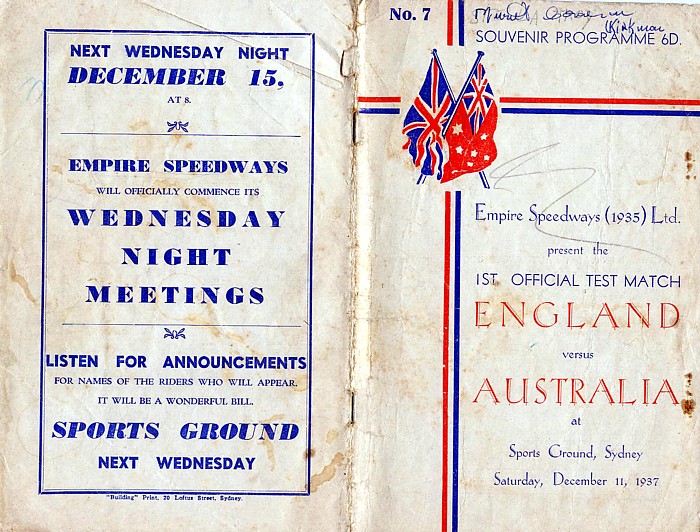 NEXT WEDNESDAY NIGHT
DECEMBER 15,
AT 8.
EMPIRE SPEEDWAYS
WILL OFFICIALLY COMMENCE ITS
WEDNESDAY
NIGHT
MEETINGS
LISTEN FOR ANNOUNCEMENTS
FOR NAMES OF THE RIDERS WHO WILL APPEAR.
IT WILL BE A WONDERFUL BILL.
SPORTS GROUND
NEXT WEDNESDAY
"Building" Print, 20 Loftus Street, Sydney.
No. 7
SOUVENIR PROGRAMME 6D.
Empire Speedways (1935) Ltd.
present the
1ST OFFICIAL TEST MATCH
ENGLAND
versus
AUSTRALIA
at
Sports Ground, Sydney
Saturday, December 11, 1937